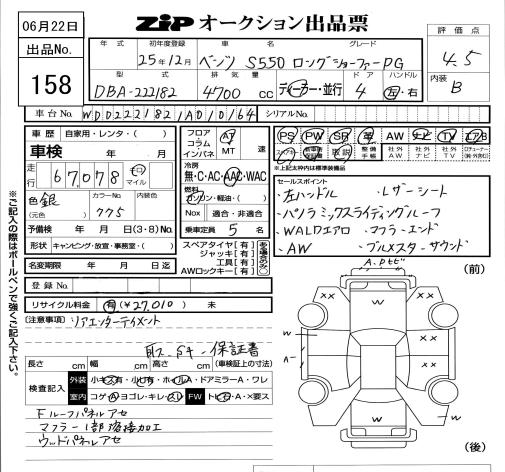 06月22日
ZiP オークション出品票
出品No.
158
年式 初年度登録 車名 グレード
25年12月 ベンツ S550 ロングショーファーPG
型式 排気量 ドア ハンドル
DBA-222182 4700 cc ディーラー・並行 4 左・右
評価点
4.5
内装
B
車台No. WDD2221821A010164 シリアルNo.
車歴 自家用・レンタ( )
車検 年 月
走行 67,078 キロ マイル
色 銀 カラーNo. 775 内装色
(元色)
予備検 年 月 日 (3・8)No.
形状 キャンピング・放宣・事務室・( )
名変期限 年 月 日迄
登録No.
リサイクル料金 有(¥27,010) 未
フロア コラム インパネ AT MT
冷房 無・C・AC・AAC・WAC
燃料 ガソリン・軽油・( )
Nox 適合・非適合
乗車定員 5 名
スペアタイヤ[有]
ジャッキ[有]
工具[有]
AWロックキー[有]
PS PW SR 革 AW ナビ TV エアB
取説 整備手帳 社外AW 社外ナビ 社外TV
*上記太枠内は標準装備品
セールスポイント
・左ハンドル ・レザーシート
・パノラミックスライディングルーフ
・WALDエアロ ・マフラーエンド
・AW ・ブルメスターサウンド
[注意事項] リアエンターテイメント
取スタ-保証書
長さ cm 幅 cm 高さ cm (車検証上の寸法)
検査記入 外装 小キズ有・小ヒ有・ホイルA・ドアミラーA・ワレ
室内 コゲA・ヨゴレ・キレ・スレ FW トビ石・A・×要ス
Fルーフパネルアセ
マフラー1部溶接加工
ウッドパネルアセ
※ご記入の際はボールペンで強くご記入下さい。
(前)
A.トビ
W
××
××
W
W
××
A-
××
W
W
(後)